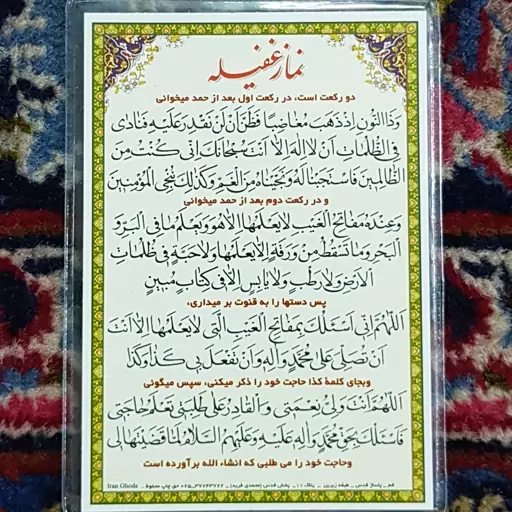 نماز غفیله
دو رکعت است، در رکعت اول بعد از حمد میخوانی
وَذَا النُّونِ اِذْ ذَهَبَ مُغَاضِبًا فَظَنَّ اَنْ لَنْ نَقْدِرَ عَلَیْهِ فَنَادٰی
فِی الظُّلُمَاتِ اَنْ لَا اِلٰهَ اِلَّا اَنْتَ سُبْحَانَكَ اِنّی كُنْتُ مِنَ
الظَّالِمینَ فَاسْتَجَبْنَا لَهُ وَنَجَّیْنَاهُ مِنَ الْغَمِّ وَكَذٰلِكَ نُنْجِی الْمُؤْمِنینَ
و در رکعت دوم بعد از حمد میخوانی
وَعِنْدَهُ مَفَاتِحُ الْغَیْبِ لَا یَعْلَمُهَا اِلَّا هُوَ وَیَعْلَمُ مَا فِی الْبَرِّ وَ
الْبَحْرِ وَمَا تَسْقُطُ مِنْ وَرَقَةٍ اِلَّا یَعْلَمُهَا وَلَا حَبَّةٍ فی ظُلُمَاتِ
الْاَرْضِ وَلَا رَطْبٍ وَلَا یَابِسٍ اِلَّا فی كِتَابٍ مُبینٍ
پس دستها را به قنوت بر میداری،
اَللّٰهُمَّ اِنّی اَسْئَلُكَ بِمَفَاتِحِ الْغَیْبِ الَّتی لَا یَعْلَمُهَا اِلَّا اَنْتَ
اَنْ تُصَلِّیَ عَلٰی مُحَمَّدٍ وَآلِهِ وَاَنْ تَفْعَلَ بی كَذَا وَكَذَا
وبجای کلمهٔ کذا حاجت خود را ذکر میکنی، سپس میگوئی
اَللّٰهُمَّ اَنْتَ وَلِیُّ نِعْمَتی وَالْقَادِرُ عَلٰی طَلِبَتی تَعْلَمُ حَاجَتی
فَاَسْئَلُكَ بِحَقِّ مُحَمَّدٍ وَآلِهِ عَلَیْهِ وَعَلَیْهِمُ السَّلَامُ لَمَّا قَضَیْتَهَا لی
وحاجت خود را می طلبی که انشاء الله برآورده است
قم _ پاساژ قدس _ طبقه زیرین _ پلاک ۱۱_ پخش قدس (محمدی فرید) _ ۳۷۷۴۳۷۲۲-۰۲۵ حق چاپ محفوظ _ Iran Ghods